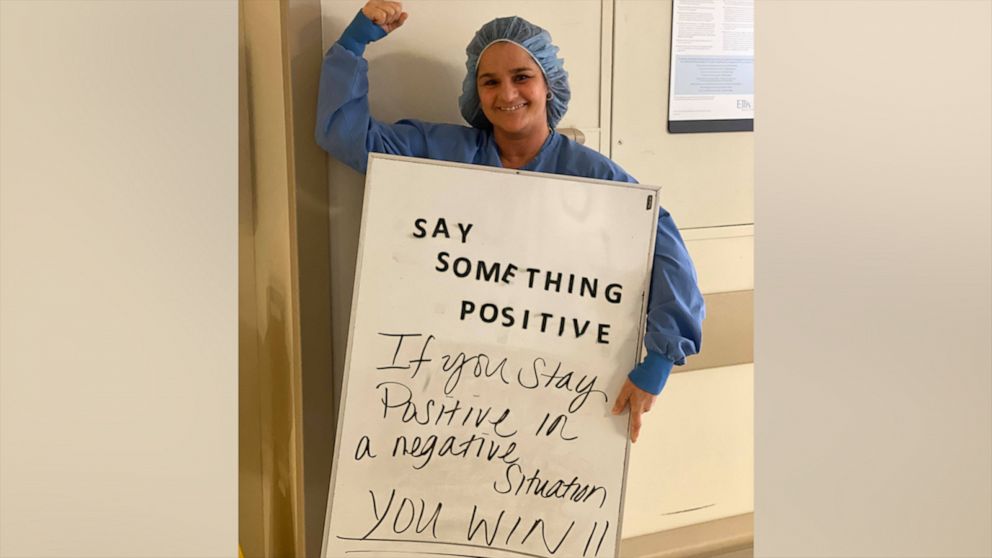 Ellis
SAY
SOMETHING
POSITIVE
If you stay
Positive in
a negative
situation
YOU WIN!!